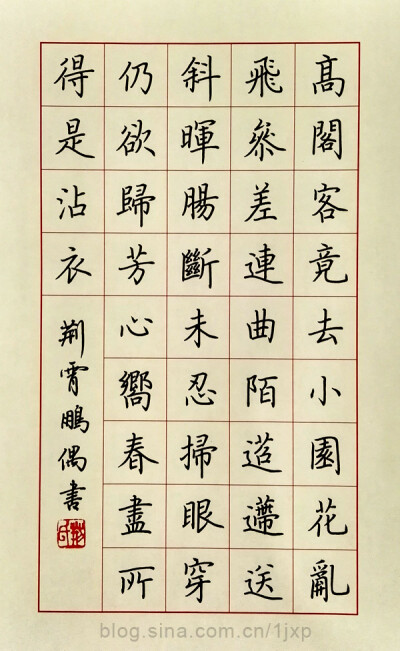 高閣客竟去小園花亂
飛叅差連曲陌迢遰送
斜暉腸斷未忍掃眼穿
仍欲歸芳心嚮春盡所
得是沾衣
荊霄鵬偶書
blog.sina.com.cn/1jxp